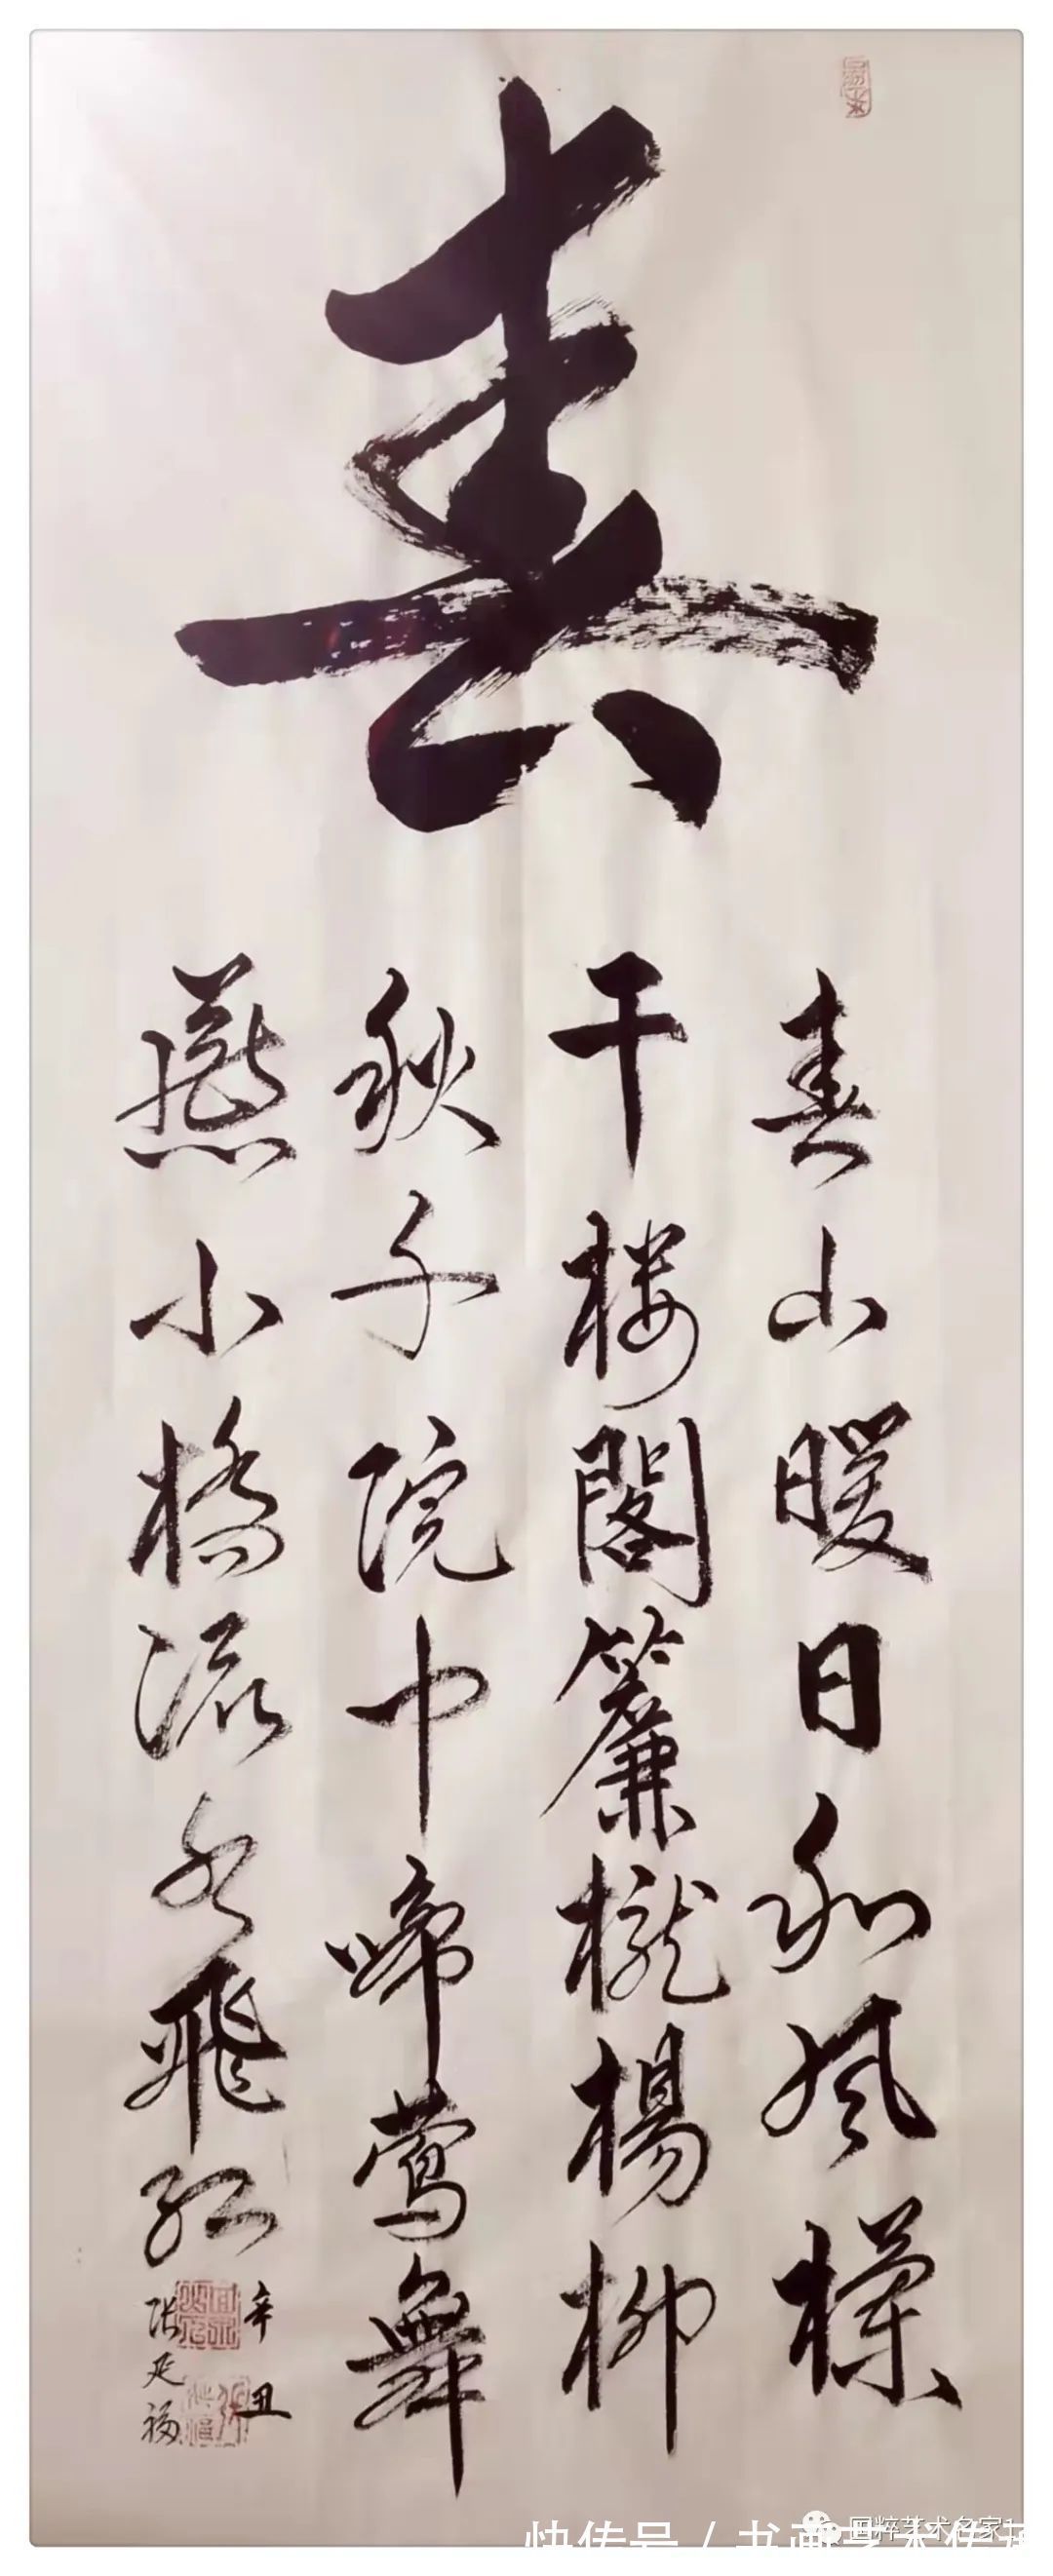 春
春山暖日和風欄
干楼閣簾櫳楊柳
秋千院中啼鶯舞
燕小橋流水飛紅
辛丑
张延福
国粹艺术名家1
快传号 / 书画艺术传播